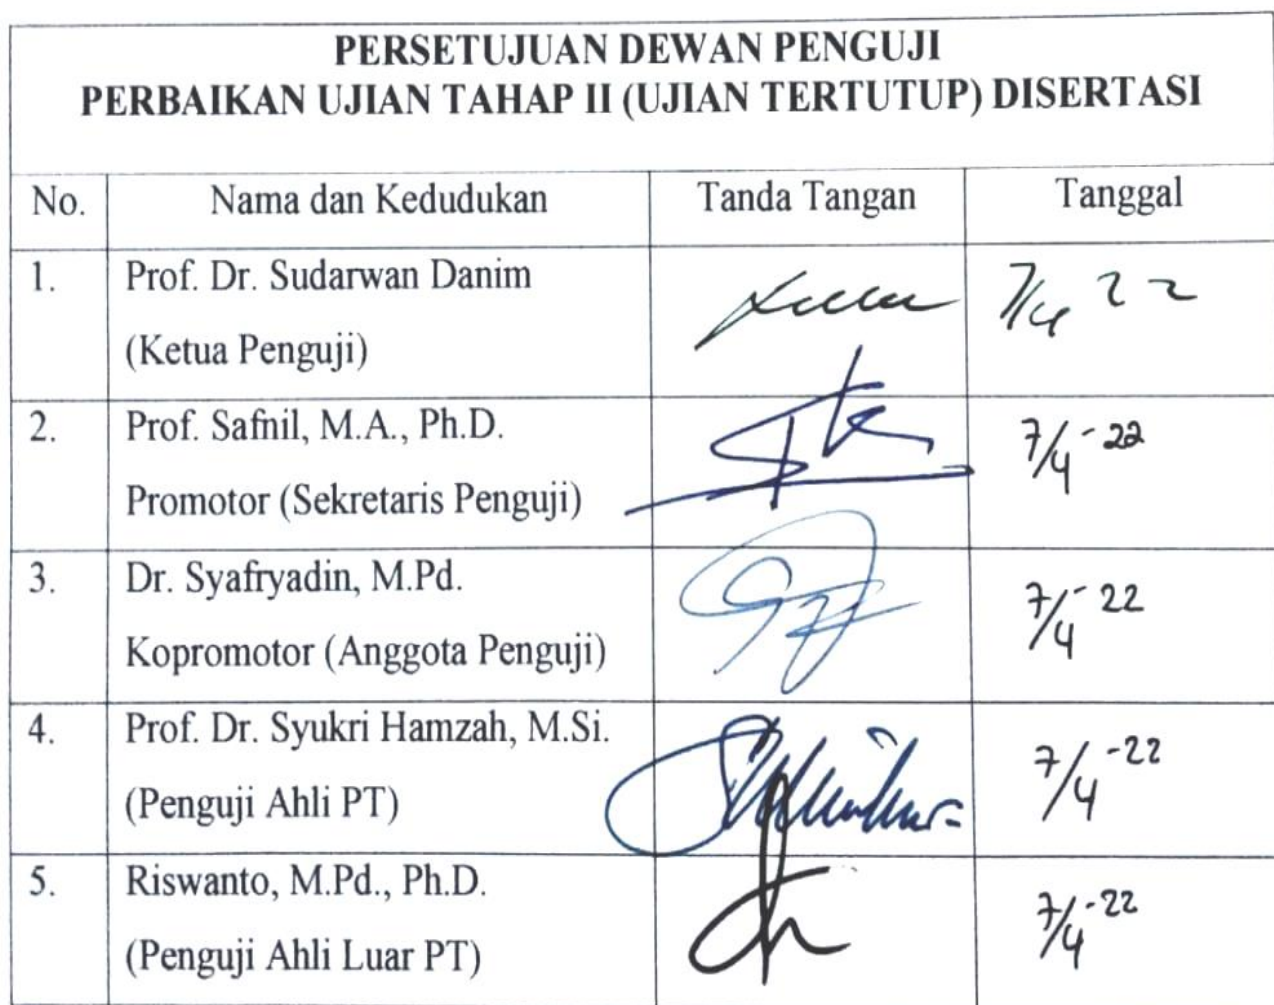 PERSETUJUAN DEWAN PENGUJI
PERBAIKAN UJIAN TAHAP II (UJIAN TERTUTUP) DISERTASI
No. Nama dan Kedudukan Tanda Tangan Tanggal
1. Prof. Dr. Sudarwan Danim 7/4 22
(Ketua Penguji)
2. Prof. Safnil, M.A., Ph.D. 7/4-22
Promotor (Sekretaris Penguji)
3. Dr. Syafryadin, M.Pd. 7/4-22
Kopromotor (Anggota Penguji)
4. Prof. Dr. Syukri Hamzah, M.Si. 7/4-22
(Penguji Ahli PT)
5. Riswanto, M.Pd., Ph.D. 7/4-22
(Penguji Ahli Luar PT)